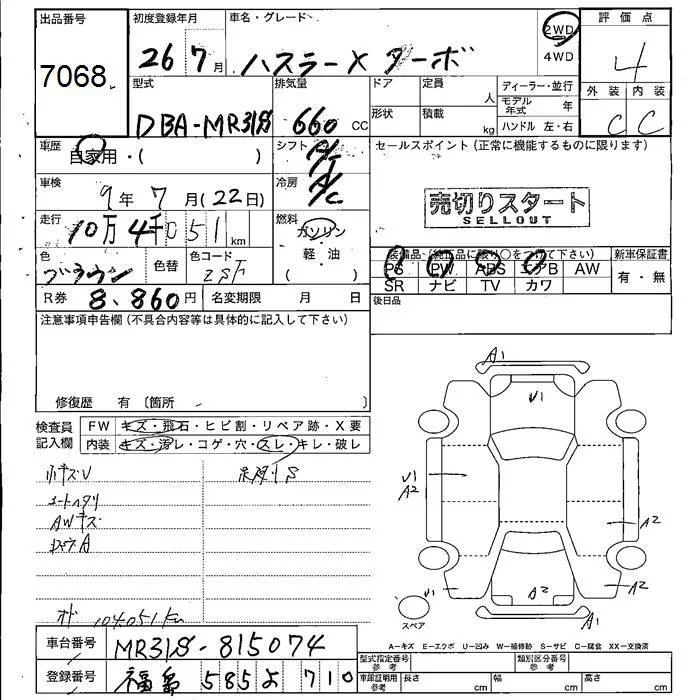 出品番号
7068
初度登録年月
26 7月
車名・グレード
ハスラー X ターボ
2WD
4WD
評価点
4
外装 内装
C C
型式
DBA-MR31S
排気量
660 CC
ドア
定員
人
形状
積載
kg
ディーラー・並行
モデル年式 年
ハンドル 左・右
車歴
自家用・( )
シフト
A/T
セールスポイント(正常に機能するものに限ります)
車検
9年 7月(22日)
冷房
A/C
売切りスタート
SELLOUT
走行
10万4千051km
燃料
ガソリン
軽・油
( )
色
ブラウン
色替
色コード
装備品・(純正品に限り○をつけて下さい)
PS PW ABS エアB AW
SR ナビ TV カワ
新車保証書
有・無
R券 8,860円
名変期限 月 日
後日品
注意事項申告欄(不具合内容等は具体的に記入して下さい)
修復歴 有 〔箇所 〕
検査員記入欄
FW キズ・飛石・ヒビ割・リペア跡・X要
内装 キズ・汚レ・コゲ・穴・スレ・キレ・破レ
小キズU
シートヘタリ
AWキズ
104051km
A1
U1
U1
A2
A2
U1
A2
A2
A1
スペア
車台番号
MR31S-815074
登録番号
福島 585 よ 710
A=キズ E=エクボ U=凹み W=補修跡 S=サビ C=腐食 XX=交換済
型式指定番号 参考
類別区分番号 参考
車庫証明用 参考
長さ cm
幅 cm
高さ cm